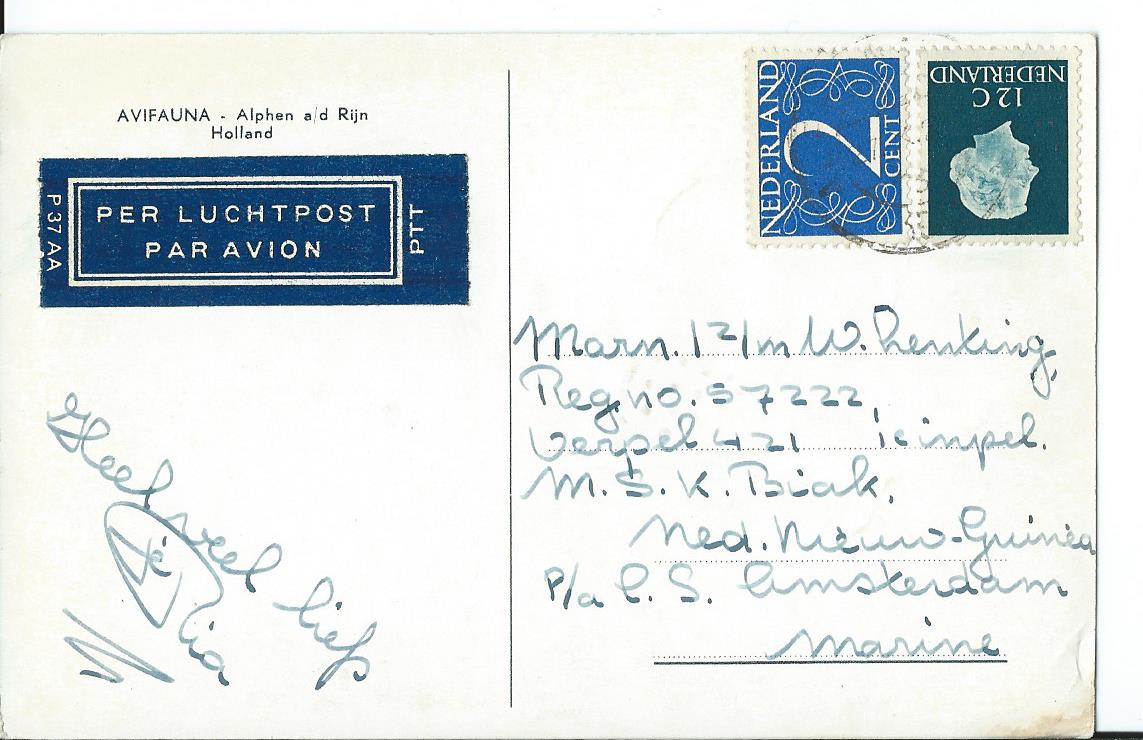 AVIFAUNA - Alphen a/d Rijn
Holland
P 37 AA
PER LUCHTPOST
PAR AVION
PTT
Heel veel liefs
je Ria
NEDERLAND
2
CENT
NEDERLAND
12 C
Marn. 1 2/m W. Lenking,
Reg no. 57222,
Verpel 421 ie inpel.
M.S.K. Biak.
Ned. Nieuw-Guinea
P/a C.S. Amsterdam
Marine